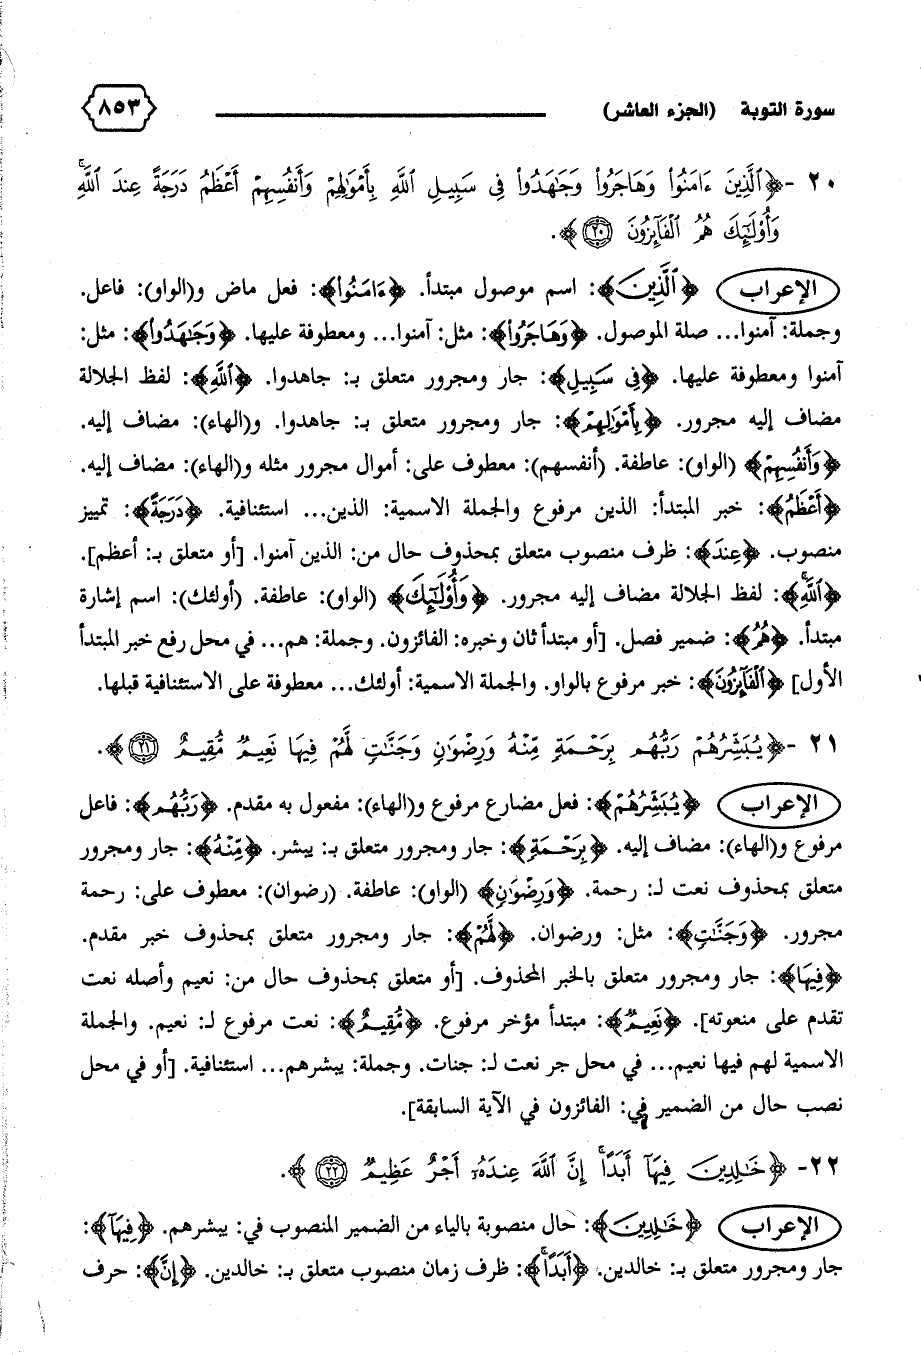 سورة التوبة (الجزء العاشر) ٨٥٣
٢٠ - ﴿ٱلَّذِينَ ءَامَنُوا۟ وَهَاجَرُوا۟ وَجَـٰهَدُوا۟ فِى سَبِيلِ ٱللَّهِ بِأَمْوَٰلِهِمْ وَأَنفُسِهِمْ أَعْظَمُ دَرَجَةً عِندَ ٱللَّهِ ۚ
وَأُو۟لَـٰٓئِكَ هُمُ ٱلْفَآئِزُونَ ٢٠﴾.
الإعراب ﴿ٱلَّذِينَ﴾: اسم موصول مبتدأ. ﴿ءَامَنُوا۟﴾: فعل ماض و(الواو): فاعل.
وجملة: آمنوا... صلة الموصول. ﴿وَهَاجَرُوا۟﴾: مثل: آمنوا... ومعطوفة عليها. ﴿وَجَـٰهَدُوا۟﴾: مثل:
آمنوا ومعطوفة عليها. ﴿فِى سَبِيلِ﴾: جار ومجرور متعلق بـ: جاهدوا. ﴿ٱللَّهِ﴾: لفظ الجلالة
مضاف إليه مجرور. ﴿بِأَمْوَٰلِهِمْ﴾: جار ومجرور متعلق بـ: جاهدوا. و(الهاء): مضاف إليه.
﴿وَأَنفُسِهِمْ﴾ (الواو): عاطفة. (أنفسهم): معطوف على: أموال مجرور مثله و(الهاء): مضاف إليه.
﴿أَعْظَمُ﴾: خبر المبتدأ: الذين مرفوع والجملة الاسمية: الذين... استئنافية. ﴿دَرَجَةً﴾: تمييز
منصوب. ﴿عِندَ﴾: ظرف منصوب متعلق بمحذوف حال من: الذين آمنوا. [أو متعلق بـ: أعظم].
﴿ٱللَّهِ ۚ﴾: لفظ الجلالة مضاف إليه مجرور. ﴿وَأُو۟لَـٰٓئِكَ﴾ (الواو): عاطفة. (أولئك): اسم إشارة
مبتدأ. ﴿هُمُ﴾: ضمير فصل. [أو مبتدأ ثان وخبره: الفائزون. وجملة: هم... في محل رفع خبر المبتدأ
الأول] ﴿ٱلْفَآئِزُونَ﴾: خبر مرفوع بالواو. والجملة الاسمية: أولئك... معطوفة على الاستئنافية قبلها.
٢١ - ﴿يُبَشِّرُهُمْ رَبُّهُم بِرَحْمَةٍ مِّنْهُ وَرِضْوَٰنٍ وَجَنَّـٰتٍ لَّهُمْ فِيهَا نَعِيمٌ مُّقِيمٌ ٢١﴾.
الإعراب ﴿يُبَشِّرُهُمْ﴾: فعل مضارع مرفوع و(الهاء): مفعول به مقدم. ﴿رَبُّهُم﴾: فاعل
مرفوع و(الهاء): مضاف إليه. ﴿بِرَحْمَةٍ﴾: جار ومجرور متعلق بـ: يبشر. ﴿مِّنْهُ﴾: جار ومجرور
متعلق بمحذوف نعت لـ: رحمة. ﴿وَرِضْوَٰنٍ﴾ (الواو): عاطفة. (رضوان): معطوف على: رحمة
مجرور. ﴿وَجَنَّـٰتٍ﴾: مثل: ورضوان. ﴿لَّهُمْ﴾: جار ومجرور متعلق بمحذوف خبر مقدم.
﴿فِيهَا﴾: جار ومجرور متعلق بالخبر المحذوف. [أو متعلق بمحذوف حال من: نعيم وأصله نعت
تقدم على منعوته]. ﴿نَعِيمٌ﴾: مبتدأ مؤخر مرفوع. ﴿مُّقِيمٌ﴾: نعت مرفوع لـ: نعيم. والجملة
الاسمية لهم فيها نعيم... في محل جر نعت لـ: جنات. وجملة: يبشرهم... استئنافية. [أو في محل
نصب حال من الضمير في: الفائزون في الآية السابقة].
٢٢ - ﴿خَـٰلِدِينَ فِيهَآ أَبَدًا ۚ إِنَّ ٱللَّهَ عِندَهُۥٓ أَجْرٌ عَظِيمٌ ٢٢﴾.
الإعراب ﴿خَـٰلِدِينَ﴾: حال منصوبة بالياء من الضمير المنصوب في: يبشرهم. ﴿فِيهَآ﴾:
جار ومجرور متعلق بـ: خالدين. ﴿أَبَدًا ۚ﴾: ظرف زمان منصوب متعلق بـ: خالدين. ﴿إِنَّ﴾: حرف